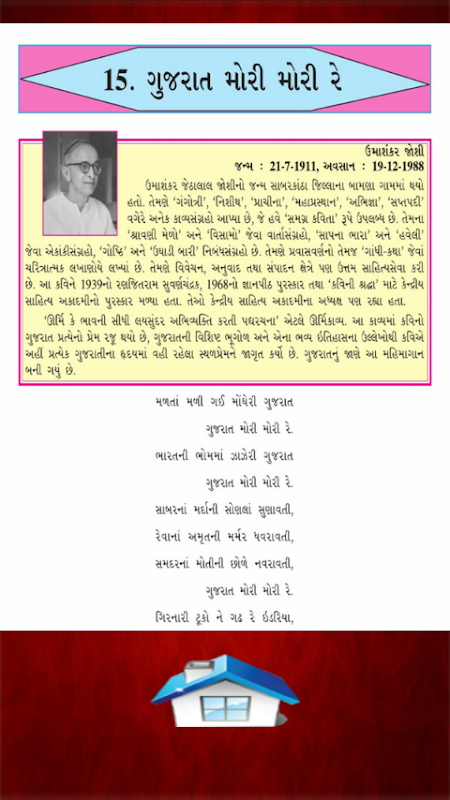 15. ગુજરાત મોરી મોરી રે
ઉમાશંકર જોશી
જન્મ : 21-7-1911, અવસાન : 19-12-1988
ઉમાશંકર જેઠાલાલ જોશીનો જન્મ સાબરકાંઠા જિલ્લાના બામણા ગામમાં થયો
હતો. તેમણે ‘ગંગોત્રી’, ‘નિશીથ’, ‘પ્રાચીના’, ‘મહાપ્રસ્થાન’, ‘અભિજ્ઞા’, ‘સપ્તપદી’
વગેરે અનેક કાવ્યસંગ્રહો આપ્યા છે, જે હવે ‘સમગ્ર કવિતા’ રૂપે ઉપલબ્ધ છે. તેમના
‘શ્રાવણી મેળો’ અને ‘વિસામો’ જેવા વાર્તાસંગ્રહો, ‘સાપના ભારા’ અને ‘હવેલી’
જેવા એકાંકીસંગ્રહો, ‘ગોષ્ઠિ’ અને ‘ઉઘાડી બારી’ નિબંધસંગ્રહો છે. તેમણે પ્રવાસવર્ણનો તેમજ ‘ગાંધી-કથા’ જેવાં
ચરિત્રાત્મક લખાણોયે લખ્યાં છે. તેમણે વિવેચન, અનુવાદ તથા સંપાદન ક્ષેત્રે પણ ઉત્તમ સાહિત્યસેવા કરી
છે. આ કવિને 1939નો રણજિતરામ સુવર્ણચંદ્રક, 1968નો જ્ઞાનપીઠ પુરસ્કાર તથા ‘કવિની શ્રદ્ધા’ માટે કેન્દ્રીય
સાહિત્ય અકાદમીનો પુરસ્કાર મળ્યા હતા. તેઓ કેન્દ્રીય સાહિત્ય અકાદમીના અધ્યક્ષ પણ રહ્યા હતા.
‘ઊર્મિ કે ભાવની સીધી લયસુંદર અભિવ્યક્તિ કરતી પદ્યરચના’ એટલે ઊર્મિકાવ્ય. આ કાવ્યમાં કવિનો
ગુજરાત પ્રત્યેનો પ્રેમ રજૂ થયો છે, ગુજરાતની વિશિષ્ટ ભૂગોળ અને એના ભવ્ય ઇતિહાસના ઉલ્લેખોથી કવિએ
અહીં પ્રત્યેક ગુજરાતીના હૃદયમાં વહી રહેલા સ્થળપ્રેમને જાગૃત કર્યો છે. ગુજરાતનું જાણે આ મહિમાગાન
બની ગયું છે.
મળતાં મળી ગઈ મોંઘેરી ગુજરાત
ગુજરાત મોરી મોરી રે.
ભારતની ભોમમાં ઝાઝેરી ગુજરાત
ગુજરાત મોરી મોરી રે.
સાબરનાં મર્દાની સોણલાં સુણાવતી,
રેવાનાં અમૃતની મર્મર ધવરાવતી,
સમદરનાં મોતીની છોળે નવરાવતી,
ગુજરાત મોરી મોરી રે.
ગિરનારી ટૂકો ને ગઢ રે ઇડરિયા,